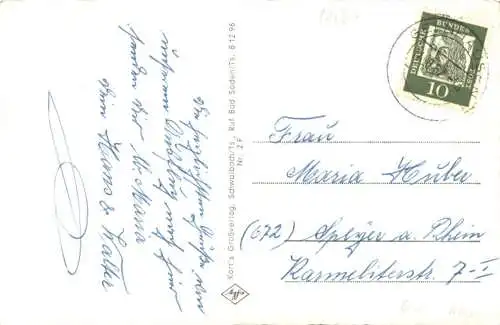 Die herzlichsten Grüße von
unserem Ausflug nach hier
senden Dir l. Mama
Dein Hans &
Kort's Großverlag, Schwalbach/Ts., Ruf Bad Soden/Ts. 8 12 96
Nr. 2 F
DEUTSCHE BUNDESPOST
10
Frau
Maria Huber
(672) Speyer a. Rhein
Karmeliterstr. 7-I